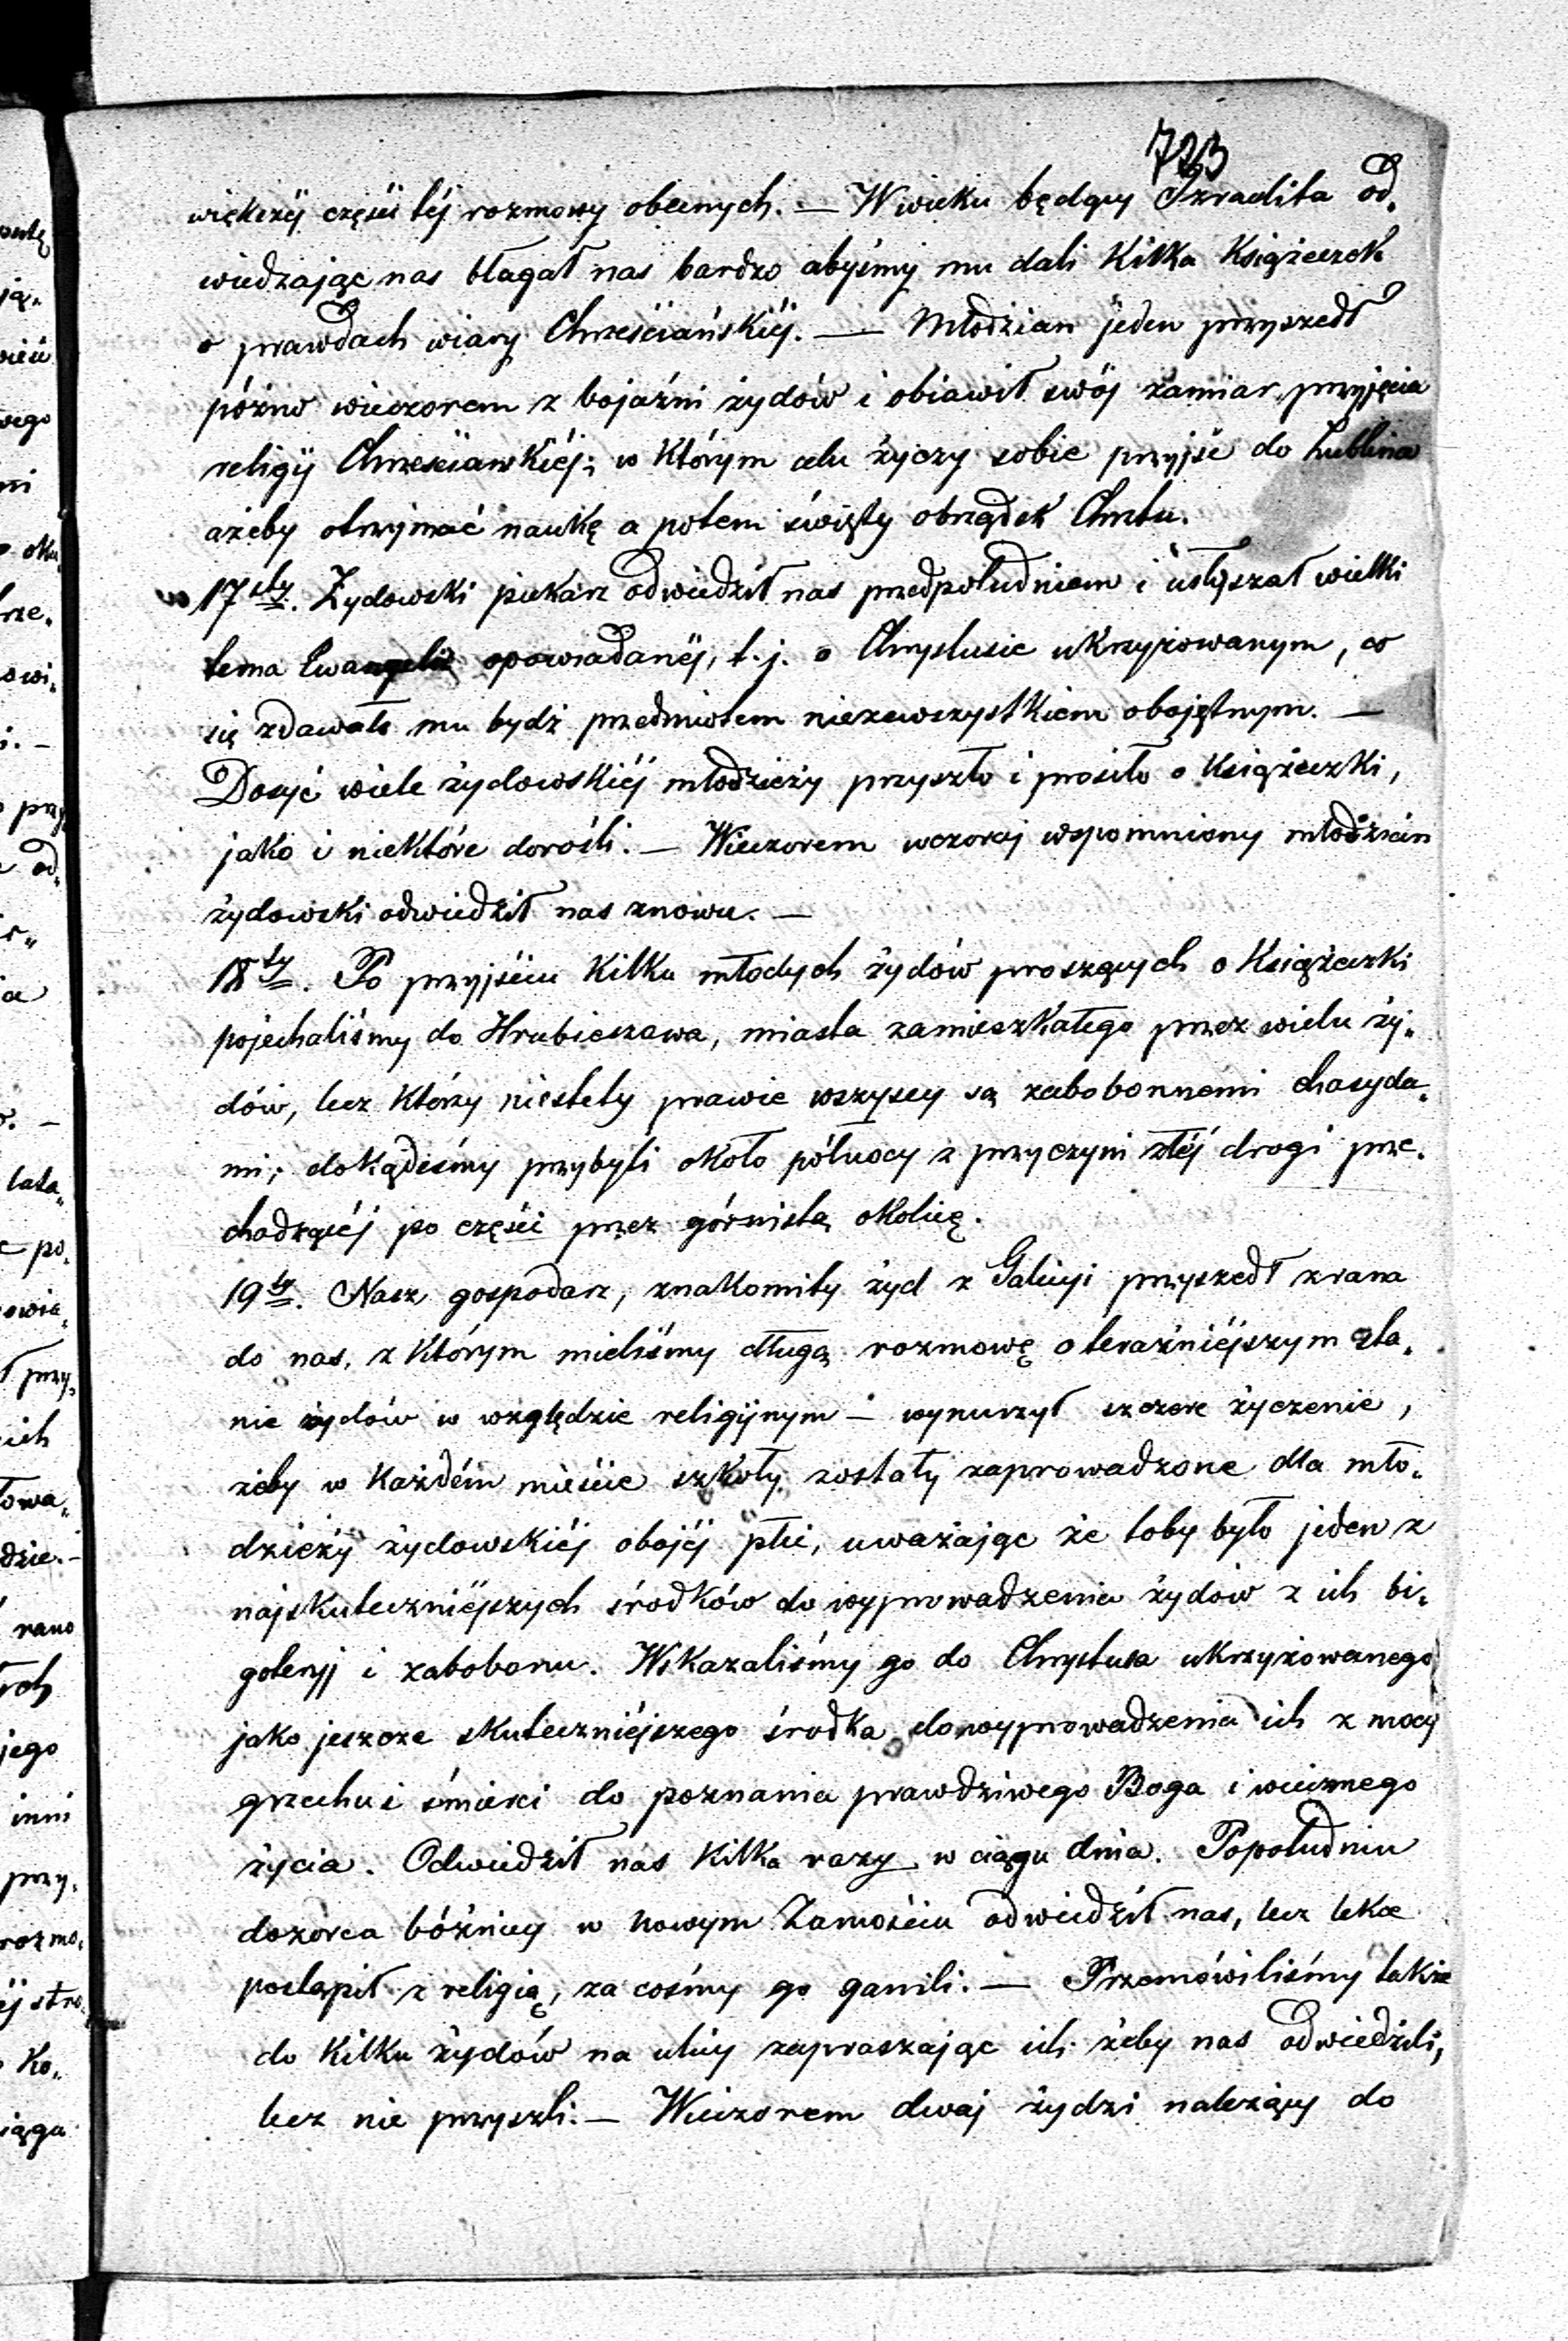 723
większéj części téj rozmowy obecnych. — W wieku będący Izraelita od„
wiedzając nas błagał nas bardzo abyśmy mu dali kilka książeczek
o prawdach wiary Chrześciańskiéj. — Młodzian jeden przyszedł
późno wieczorem z bojaźni żydów i obiawił swój zamiar przyjęcia
religij Chrześciańskiéj; w którym celu życzy sobie przyjść do Lublina
ażeby otrzymać naukę a potem święty obrządek Chrztu.
17sty. Żydowski piekarz odwiedził nas przedpołudniem i usłyszał wielki
tema Ewangelii opowiadanéj, t. j. o Chrystusie ukrzyżowanym, co
się zdawało mu bydź przedmiotem niezewszystkiem obojętnym. —
Dosyć wiele żydowskiéj młodzieży przyszło i prosiło o książeczki,
jako i niektóre dorośli. — Wieczorem wczoraj wspomniony młodzian
żydowski odwiedził nas znowu. —
18ty. Po przyjściu kilku młodych żydów proszących o książeczki
pojechaliśmy do Hrubieszowa, miasta zamieszkałego przez wielu ży„
dów, lecz którzy niestety prawie wszyscy są zabobonnemi chasyda„
mi; dokądeśmy przybyli około północy z przyczyni złéj drogi prze„
chadzącéj po części przez górnistą okolicę.
19ty. Nasz gospodarz, znakomity żyd z Galicyi przyszedł zrana
do nas, z którym mieliśmy długą rozmowę o teraźniéjszym sta„
nie żydów w względzie religijnym — wynurzył szczere życzenie,
żeby w każdém mieście szkoły zostały zaprowadzone dla mło„
dzieży żydowskiéj obojéj płci, uważając że toby było jeden z
najskuteczniéjszych środków do wyprowadzenia żydów z ich bi„
goteryj i zabobonu. Wskazaliśmy go do Chrystusa ukrzyżowanego
jako jeszcze skuteczniéjszego środka do wyprowadzenia ich z mocy
grzechu i śmierci do poznania prawdziwego Boga i wiecznego
życia. Odwiedził nas kilka razy w ciągu dnia. Popołudniu
dozorca bóżnicy w nowym Zamościu odwiedził nas, lecz lekce
postąpił z religią, za cośmy go ganili. — Przemówiliśmy także
do kilku żydów na ulicy zapraszając ich żeby nas odwiedzili,
lecz nie przyszli. — Wieczorem dwaj żydzi należący do